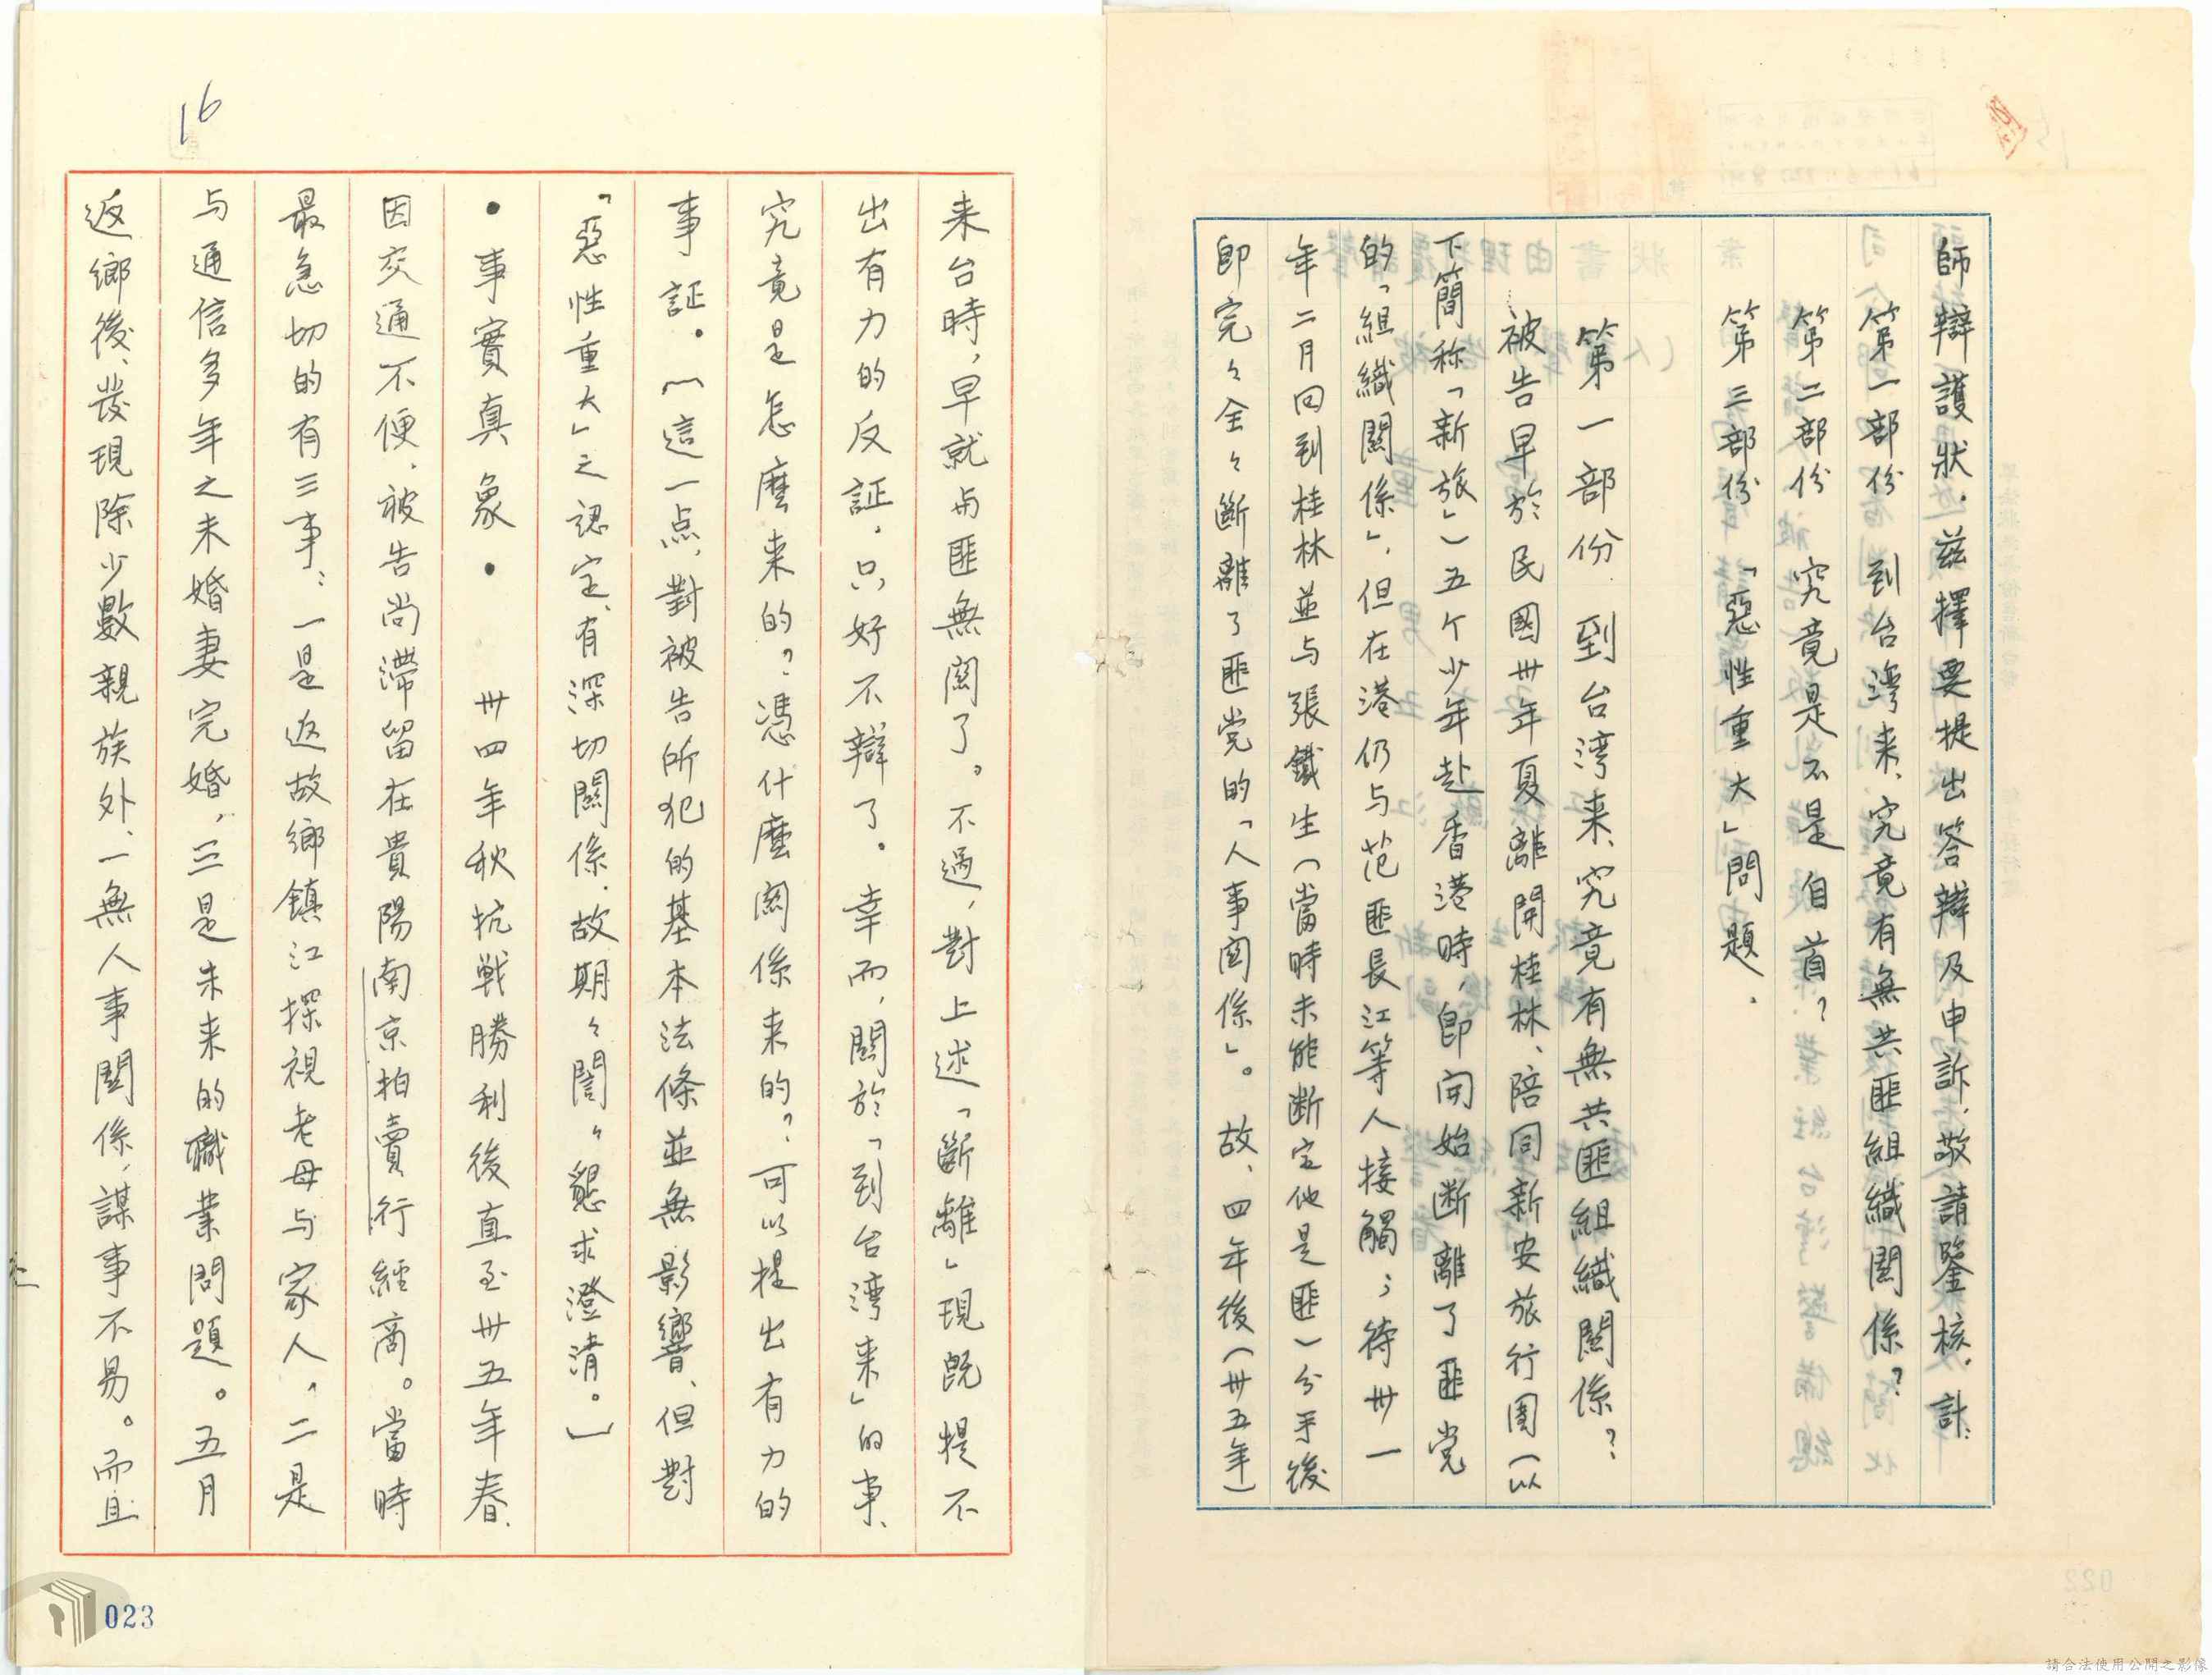 師辯護狀．兹擇要提出答辯及申訴，敬請鑒核．計：
第一部份　到台湾来、究竟有無共匪組織關係？
第二部份　究竟是不是自首？
第三部份　「惡性重大」問題．
第一部份　到台湾来、究竟有無共匪組織關係？
被告早於民國卅年夏離開桂林、陪同新安旅行團（以
下簡称「新旅」）五个少年赴香港時，卽開始断離了匪党
的「組織關係」，但在港仍与范匪長江等人接觸；待卅一
年二月回到桂林並与張鐵生（當時未能断定他是匪）分手後
卽完々全々斷離了匪党的「人事関係」。故、四年後（卅五年）
16
来台時，早就与匪無関了。不過，對上述「斷離」現旣提不
出有力的反証．只好不辯了．幸而，關於「到台湾来」的事、
究竟是怎麼来的？憑什麼関係来的？可以提出有力的
事証．〔這一点，對被告所犯的基本法條並無影響、但對
「惡性重大」之認定、有深切關係．故期々誾々懇求澄清。〕
●事實真象．●　卅四年秋抗戦勝利後直至卅五年春、
因交通不便，被告尚滯留在貴陽南京拍賣行經商。當時
最急切的有三事：一是返故鄉鎮江探視老母与家人，二是
与通信多年之未婚妻完婚，三是未来的職業問題。五月
返鄉後、發現除少數親族外、一無人事關係，謀事不易。而且
023
請合法使用公開之影像